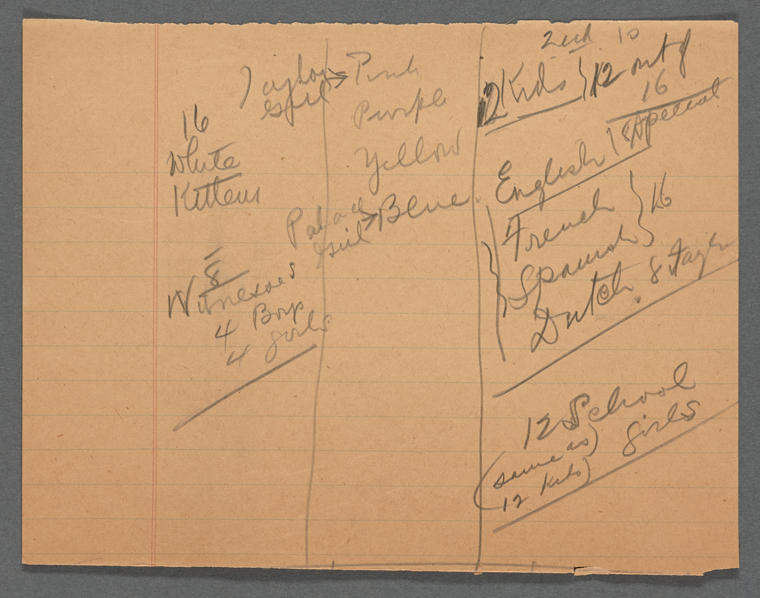 16
White
Kittens
8
Witnesses
4 Boys
4 girls
Taylor → Pink
girl
Purple
Yellow
Palace → Blue
girl
2nd 10
12 Kids } 12 out of
16
English } 8 Special
French } 16
Spanish
Dutch. 8
12 School
girls
(same as
12 kids)